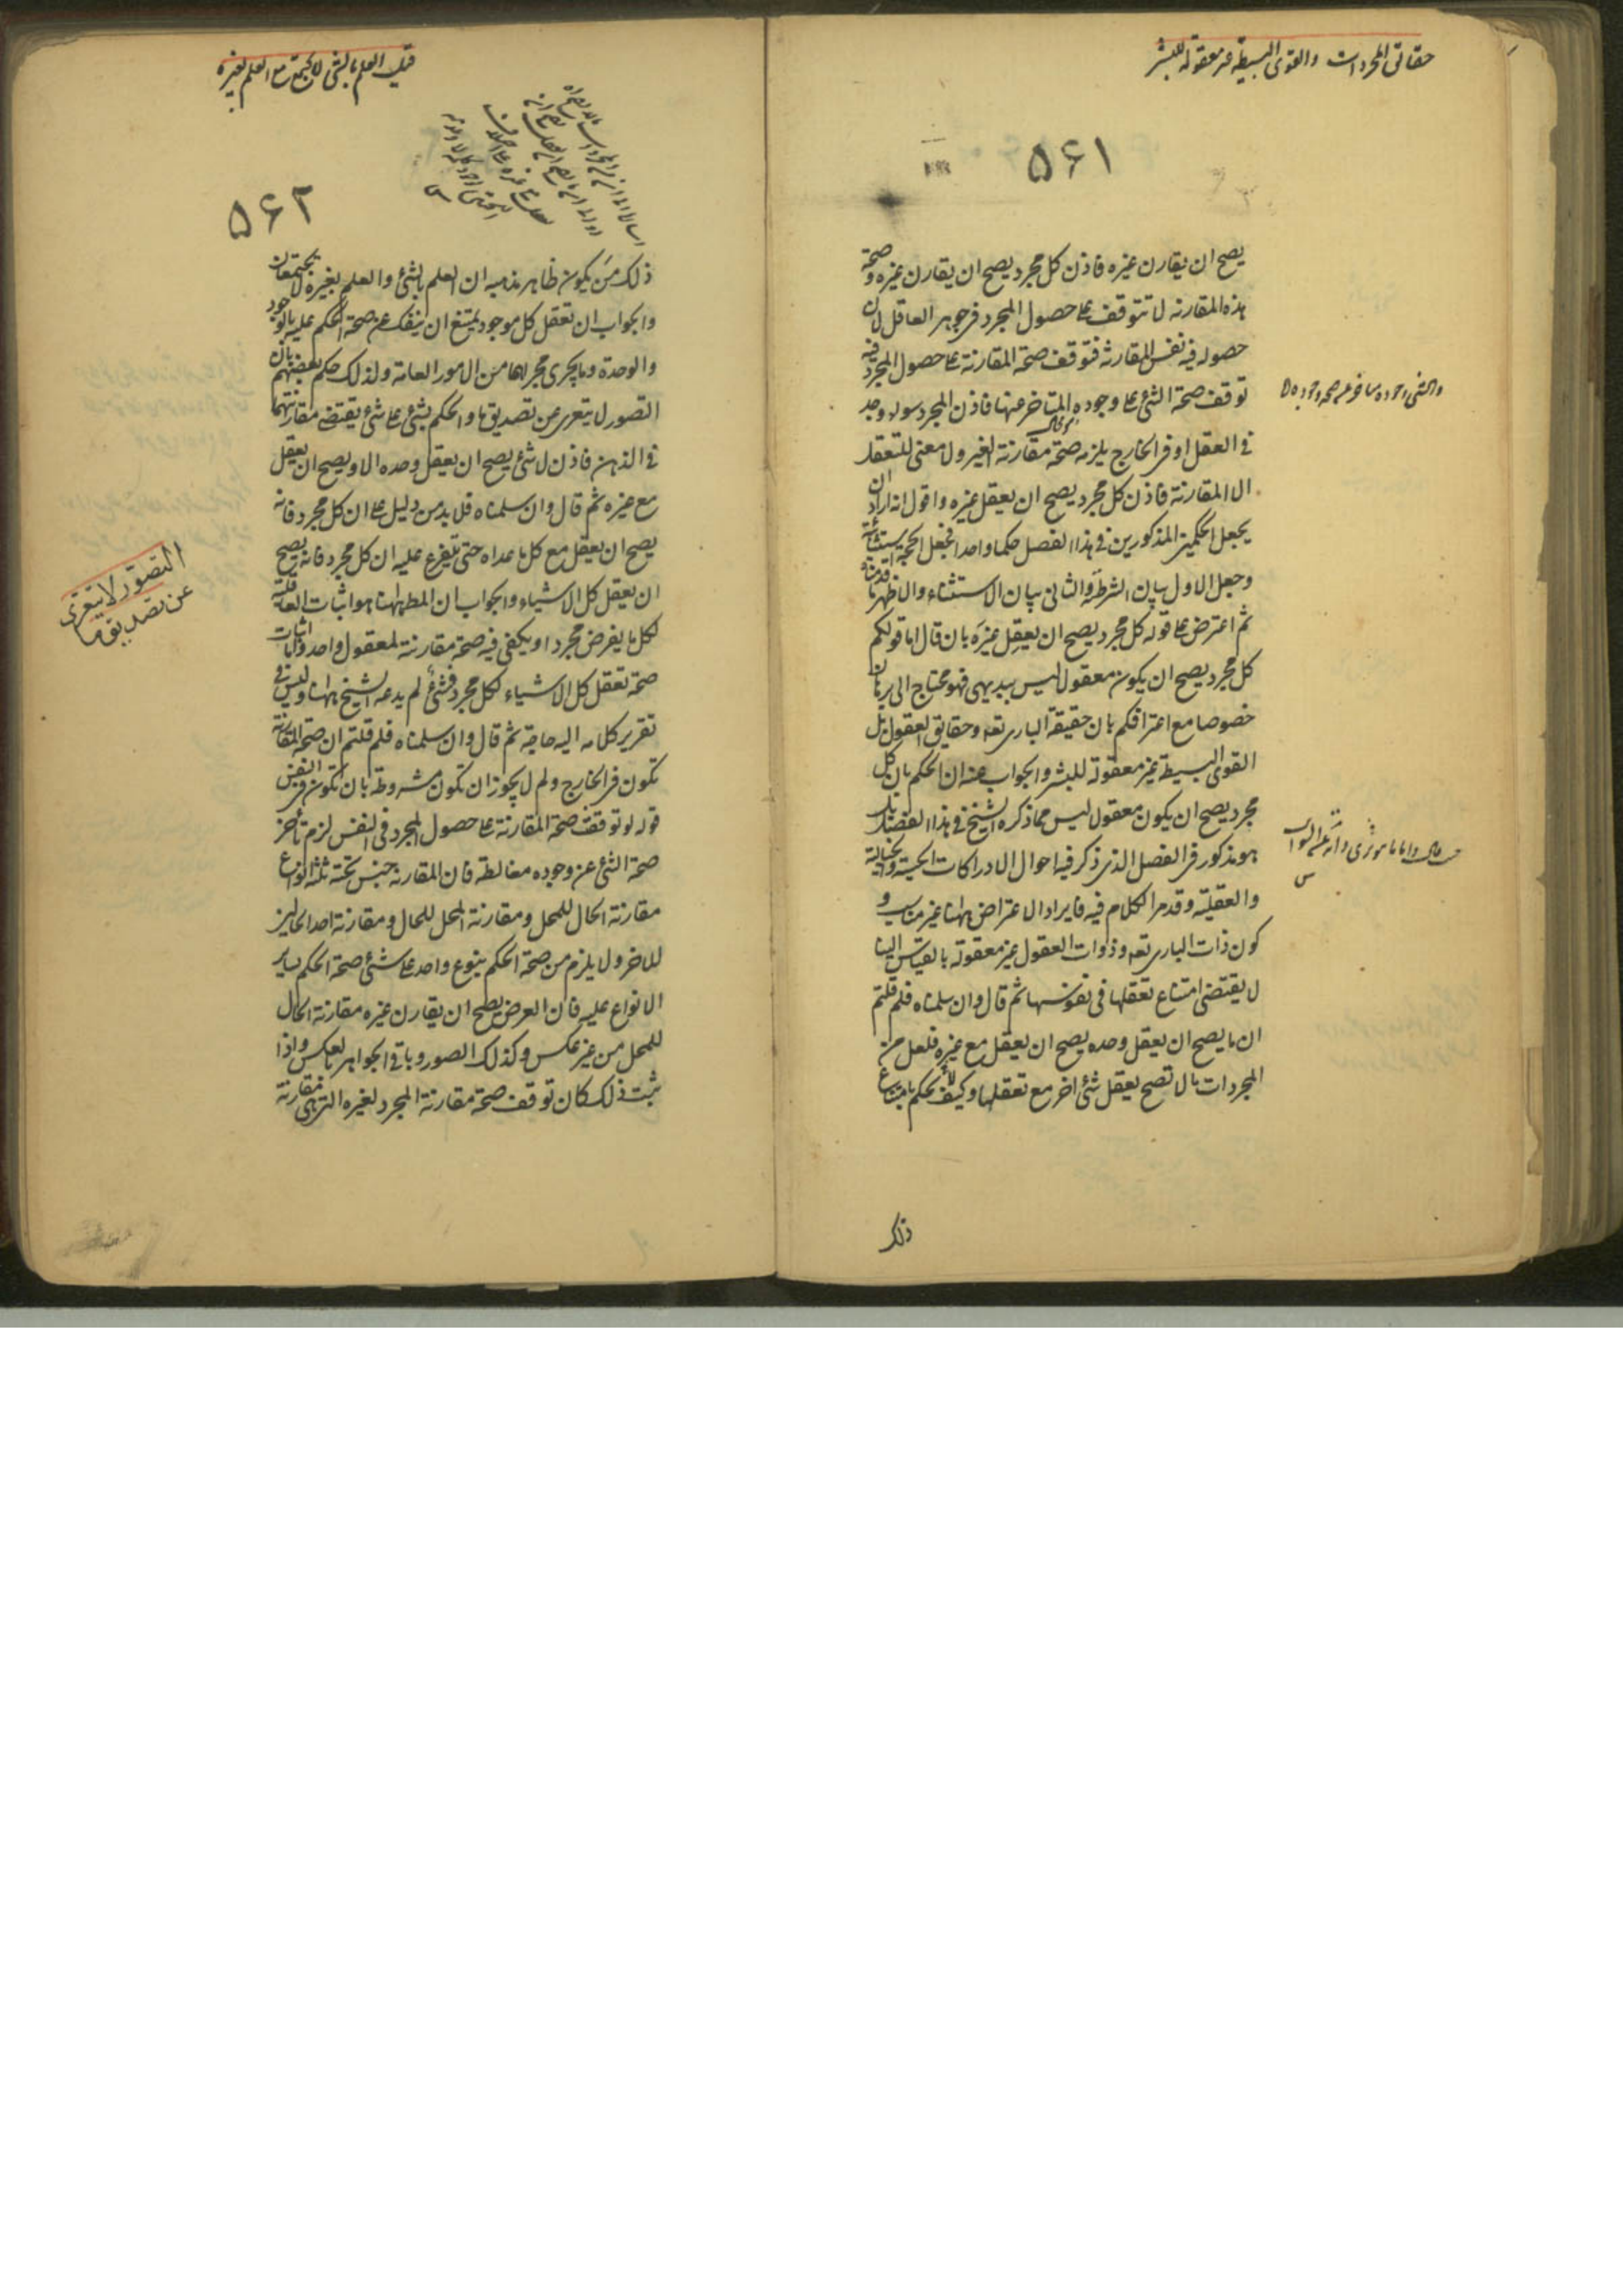 حقائق المجردات والقوى البسيطة غير معقولة للبشر
۵۶۱
يصح ان يقارن غيره فاذن كل مجرد يصح ان يقارن غيره وصحة
هذه المقارنة لا تتوقف على حصول المجرد فى جوهر العاقل لان
حصوله فيه نفس المقارنة فتوقف صحة المقارنة على حصول المجرد فيه
توقف صحة الشئ على وجوده المتاخر عنها فاذن المجرد سواء وجد
فى العقل او فى الخارج يلزمه صحة مقارنة الغير ولا معنى للتعقل
الا المقارنة فاذن كل مجرد يصح ان يعقل غيره واقول انه اراد ان
يجعل الحكمين المذكورين فى هذا الفصل حكما واحدا فجعل الحجة استثنائية
وجعل الاول بيان الشرطية والثانى بيان الاستثناء والاظهر ما قدمناه
ثم اعترض على قوله كل مجرد يصح ان يعقل غيره بان قال اما قولكم
كل مجرد يصح ان يكون معقولا ليس ببديهى فهو محتاج الى برهان
خصوصا مع اعترافكم بان حقيقة البارى تعه وحقايق العقول بل
القوى البسيطة غير معقولة للبشر والجواب عنه ان الحكم بان كل
مجرد يصح ان يكون معقولا ليس مما ذكره الشيخ فى هذا الفصل بل
هو مذكور فى الفصل الذى ذكر فيه احوال الادراكات الحسية والخيالية
والعقلية وقد مر الكلام فيه فايراد الاعتراض ههنا غير مناسب و
كون ذات البارى تعه وذوات العقول غير معقولة بالقياس الينا
لا يقتضى امتناع تعقلها فى نفوسها ثم قال وان سلمناه فلم قلتم
ان ما يصح ان يعقل وحده يصح ان يعقل مع غيره فلعل من
المجردات ما لا تصح يعقل شئ اخر مع تعقلها وكيف لا يحكم بامتناع
ذلك
قيل العلم بالشئ لا يجتمع مع العلم بغيره
۵۶۲
ذلك من يكون ظاهر مذهبه ان العلم بالشئ والعلم بغيره لا يجتمعان
والجواب ان تعقل كل موجود يمتنع ان ينفك عن صحة الحكم عليه بالوجود
والوحدة وما يجرى مجراهما من الامور العامة ولذلك حكم بعضهم بان
التصور لا يتعرى عن تصديق ما والحكم بشئ على شئ يقتضى مقارنتهما
فى الذهن فاذن لا شئ يصح ان يعقل وحده الا ويصح ان يعقل
مع غيره ثم قال وان سلمناه فلا بد من دليل على ان كل مجرد فانه
يصح ان يعقل مع كل ما عداه حتى يتفرع عليه ان كل مجرد فانه يصح
ان يعقل كل الاشياء والجواب ان المط ههنا هو اثبات العاقلية
لكل ما يفرض مجردا ويكفى فيه صحة مقارنته لمعقول واحد واما اثبات
صحة تعقل كل الاشياء لكل مجرد فشئ لم يدعه الشيخ ههنا وليس فى
تقرير كلامه اليه حاجة ثم قال وان سلمناه فلم قلتم ان صحة المقارنة
تكون فى الخارج ولم لا يجوز ان تكون مشروطة بان تكون فى النفس
قوله لو توقفت صحة المقارنة على حصول المجرد فى النفس لزم تأخر
صحة الشئ عن وجوده مغالطة فان المقارنة جنس تحته ثلثة انواع
مقارنة الحال للمحل ومقارنة المحل للحال ومقارنة احد الحالين
للاخر ولا يلزم من صحة الحكم بنوع واحد على شئ صحة الحكم بساير
الانواع عليه فان العرض يصح ان يقارن غيره مقارنة الحال
للمحل من غير عكس وكذلك الصور وباقى الجواهر بالعكس واذا
ثبت ذلك كان توقف صحة مقارنة المجرد لغيره التى هى مقارنة
التصور لا يتعرى
عن تصديق ما